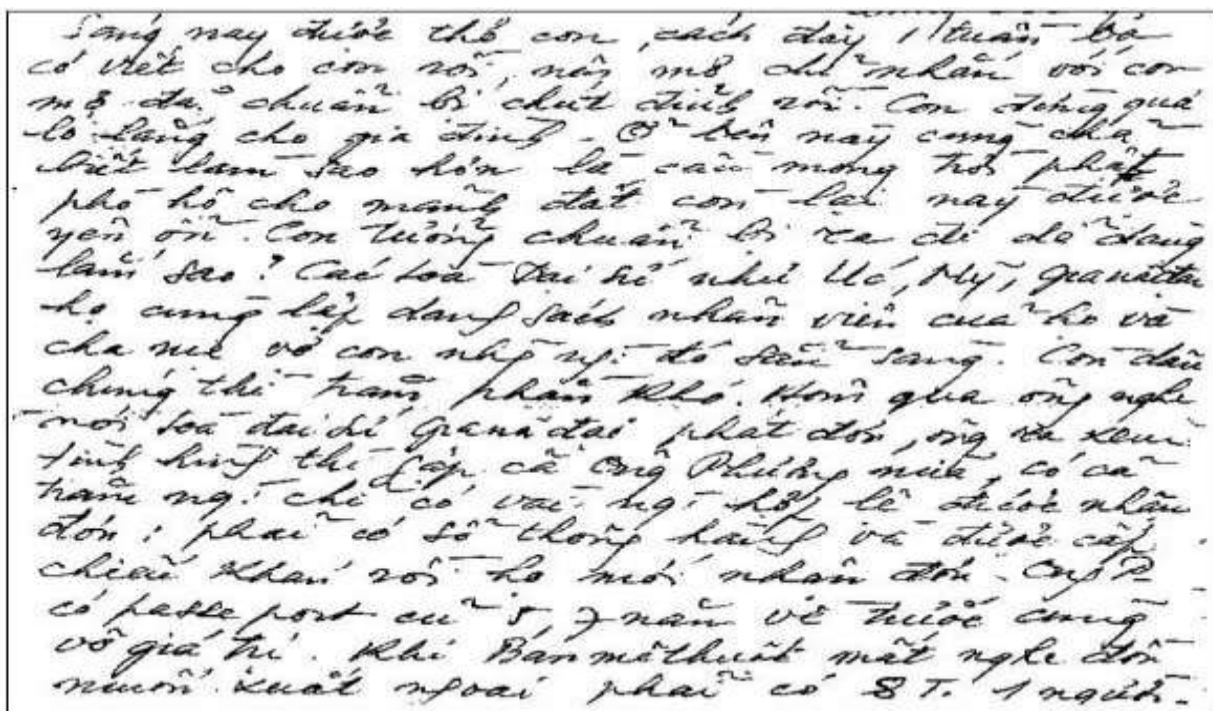 Sáng nay được thơ con, cách đây 1 tuần bà
có viết cho con rồi, nay mợ chỉ nhắn với con
mợ đã chuẩn bị chút đỉnh rồi. Con đừng quá
lo lắng cho gia đình. Ở bên nay cũng chả
biết làm sao hơn là cầu mong trời phật
phò hộ cho mảnh đất còn lại nay được
yên ổn. Con tưởng chuẩn bị ra đi dễ dàng
lắm sao? Các toà Đại sứ như Úc, Mỹ, Granada
họ cũng lập dang sách nhân viên của họ và
cha mẹ vợ con nhg ng. đó sẵn sàng. Còn dân
chúng thì trăm phần khó. Hôm qua ông nghe
nói toà đại sứ Granada phát đơn, ông ra xem
tình hình thì gặp cả ông Phương nữa, có cả
trăm ng. chỉ có vài ng. hợp lệ được nhận
đơn: phải có số thông hành và được cấp
chiếu khán rồi họ mới nhận đơn. Ông P.
có passe port cũ 5, 7 năm về trước cũng
vô giá trị. Khi Banmêthuột mất nghe đồn
muốn xuất ngoại phải có 8 T. 1 người.